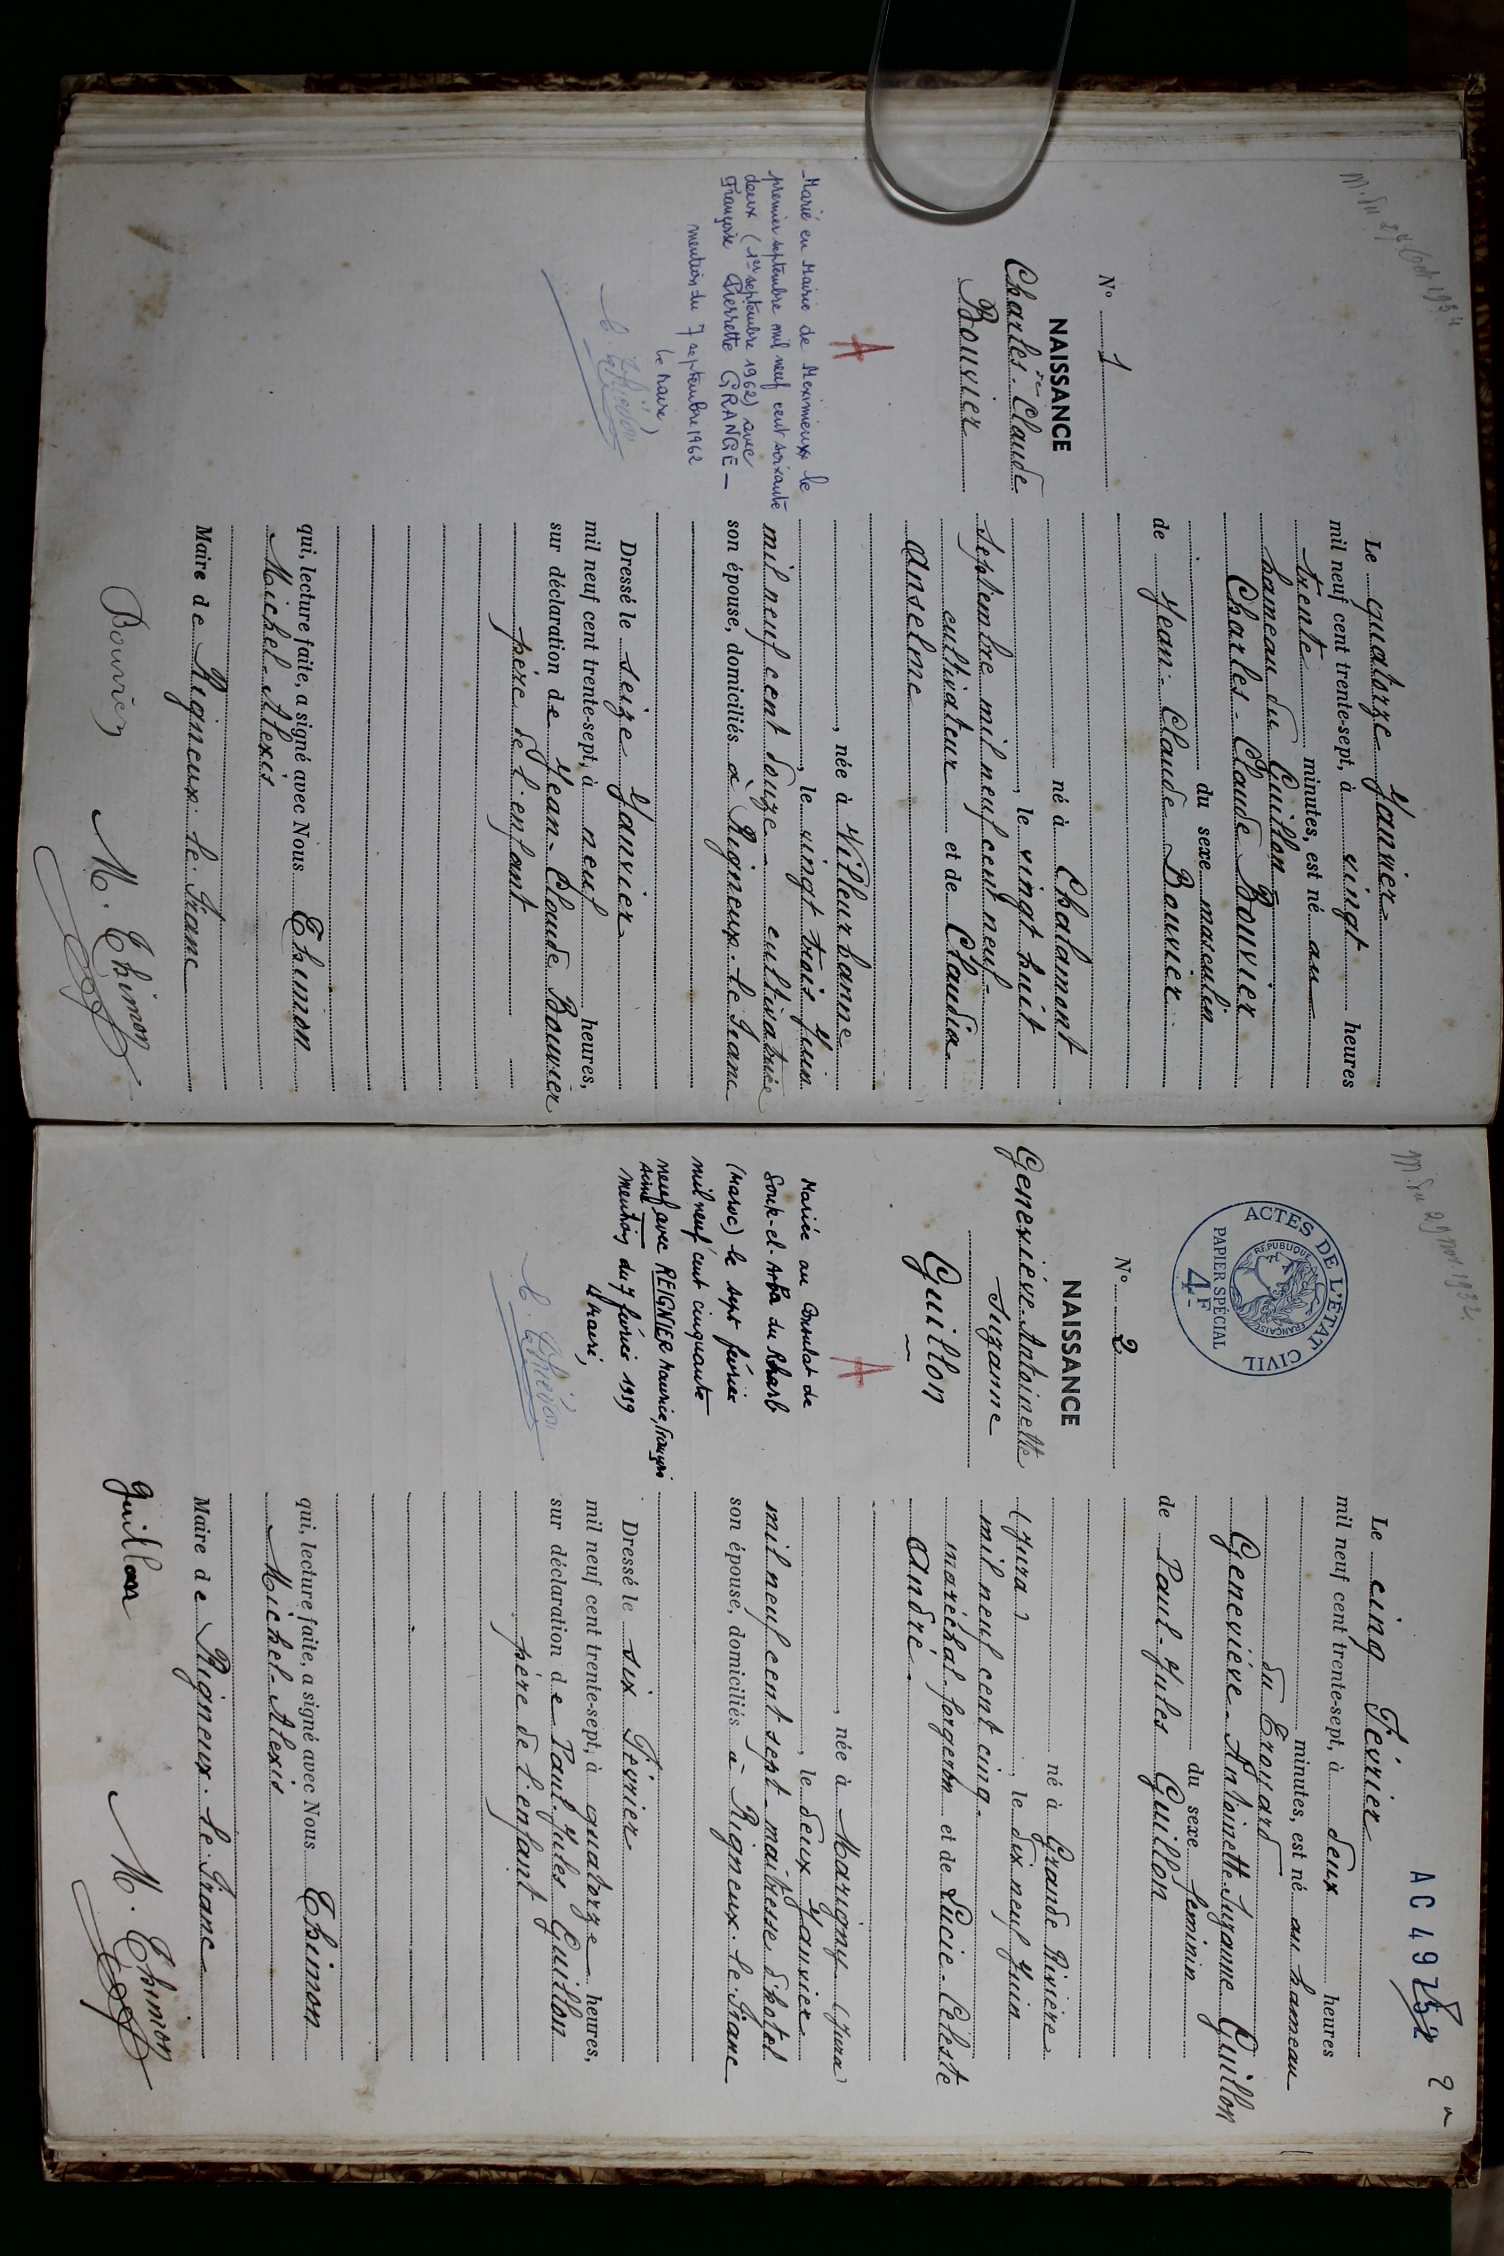 N° 1
NAISSANCE
Charles-Claude
Bouvier
A
Marié en Mairie de Meximieux le
premier septembre mil neuf cent soixante
deux (1er septembre 1962) avec
Françoise Pierrette GRANGE -
mention du 7 septembre 1962
Le Maire,
Le quatorze Janvier
mil neuf cent trente-sept, à vingt heures
trente minutes, est né au
hameau du Guillon
Charles-Claude Bouvier
du sexe masculin
de Jean-Claude Bouvier
né à Chalamont
, le vingt huit
septembre mil neuf cent neuf-
cultivateur et de Claudia
Anselme
, née à Villeurbanne
, le vingt trois Juin
mil neuf cent douze - cultivatrice
son épouse, domiciliés à Rigneux-le-Franc
Dressé le seize Janvier
mil neuf cent trente-sept, à neuf heures,
sur déclaration de Jean-Claude Bouvier
père de l'enfant
qui, lecture faite, a signé avec Nous Thimon
Michel-Alexis
Maire de Rigneux-le-Franc
Bouvier M. Thimon
AC 49752
2
ACTES DE L'ÉTAT CIVIL
RÉPUBLIQUE FRANÇAISE
PAPIER SPÉCIAL
4F
N° 2
NAISSANCE
Geneviève-Antoinette
Suzanne
Guillon
A
Mariée au Consulat de
Souk-el-Arba du Rharb
(Maroc) le sept février
mil neuf cent cinquante
neuf avec REIGNIER Maurice, François
mention du 7 février 1959
Le Maire,
Le cinq Février
mil neuf cent trente-sept, à deux heures
minutes, est né au hameau
du
Geneviève-Antoinette-Suzanne Guillon
du sexe feminin
de Paul-Jules Guillon
né à Grande Rivière
(Jura) , le dix neuf Juin
mil neuf cent cinq-
maréchal-forgeron et de Lucie-Celeste
André-
, née à Marigny (Jura)
, le deux Janvier
mil neuf cent sept - maitresse d'hotel
son épouse, domiciliés à Rigneux-le-Franc
Dressé le six Février
mil neuf cent trente-sept, à quatorze heures,
sur déclaration de Paul-Jules Guillon
père de l'enfant
qui, lecture faite, a signé avec Nous Thimon
Michel-Alexis
Maire de Rigneux-le-Franc
guillon M. Thimon